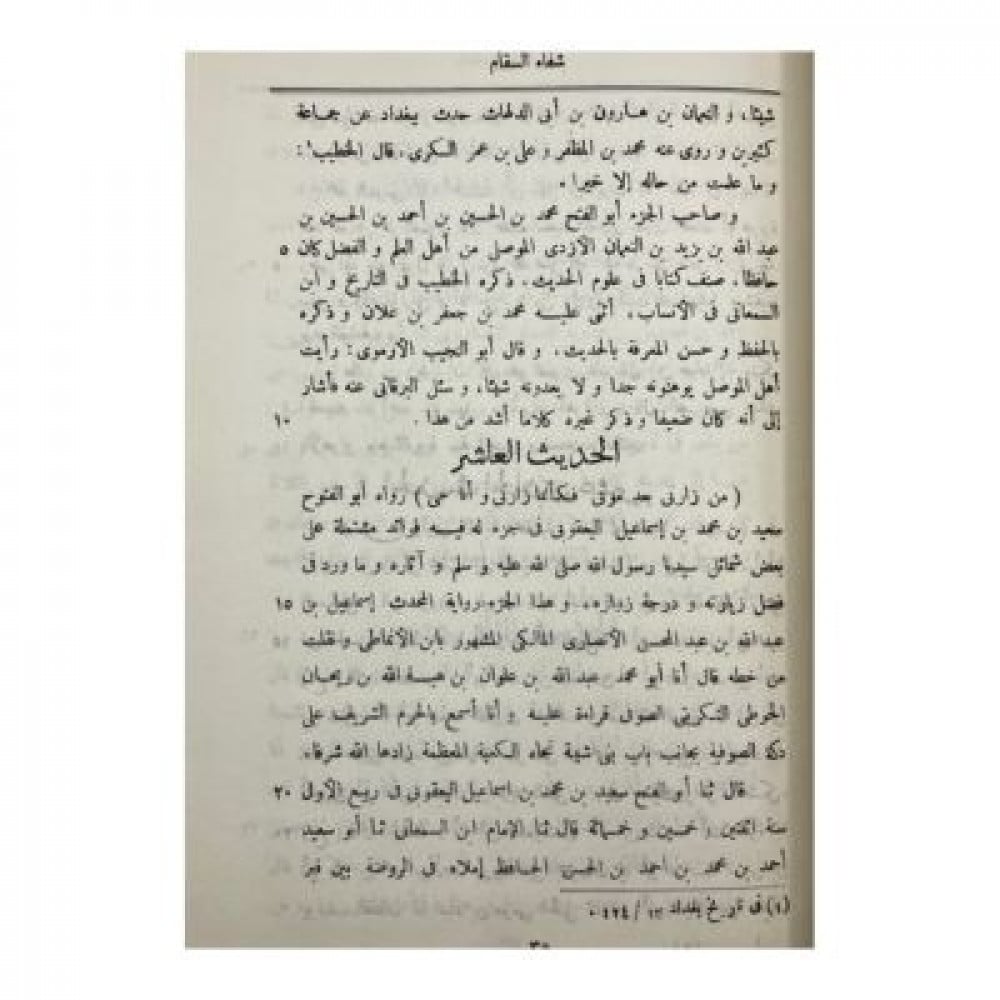 شفاء السقام
شيئا، و النعمان بن هـارون بن أبى الدلهاث حدث ببغداد عن جماعة
كثيرين و روى عنه محمد بن المظفر و على بن عمر السكرى، قال الخطيب¹:
و ما علمت من حاله إلا خيرا .
و صاحب الجزء أبو الفتح محمد بن الحسين بن أحمد بن الحسين بن
عبد الله بن يزيد بن النعمان الأزدى الموصلى من أهل العلم و الفضل كان ٥
حافظا، صنف كتابا فى علوم الحديث، ذكره الخطيب فى التاريخ و ابن
السمعانى فى الأنساب، أثنى عليـه محمد بن جعفر بن علان و ذكره
بالحفظ و حسن المعرفة بالحديث، و قال أبو النجيب الأرموى: رأيت
أهل الموصل يوهنونه جدا و لا يعدونه شيئا، و سئل البرقانى عنه فأشار
إلى أنه كان ضعيفا و ذكر غيره كلاما أشد من هذا . ١٠
الحديث العاشر
(من زارنى بعد موتى فكأنما زارنى و أنا حى) رواه أبو الفتوح
سعيد بن محمد بن إسماعيل اليعقوبى فى جزء له فيـه فوائد مشتملة على
بعض شمائل سيدنا رسول الله صلى الله عليه و سلم و آثاره و ما ورد فى
فضل زيارته و درجة زواره، و هذا الجزء رواية المحدث إسماعيل بن ١٥
عبد الله بن عبد المحسن الأنصارى المالكى المشهور بابن الأنماطى و نقلت
من خطه قال أنا أبو محمد عبد الله بن علوان بن هبـة الله بن ريحان
الحوطى التكريتى الصوفى قراءة عليـه و أنا أسمع بالحرم الشريف على
دكة الصوفية بجانب باب بنى شيبة تجاه الكعبة المعظمة زادها الله شرفا،
قال ثنا أبو الفتح سعيد بن محمد بن اسماعيل اليعقوبى فى ربيع الأول ٢٠
سنة اثنتين و خمسين و خمسمائة قال ثنا الإمام ابن السمعانى ثنا أبو سعيد
أحمد بن محمد بن أحمد بن الحسن الحـافظ إملاء فى الروضة بين قبر
(١) فى تاريخ بغداد ١٣ / ٤٢٤ .